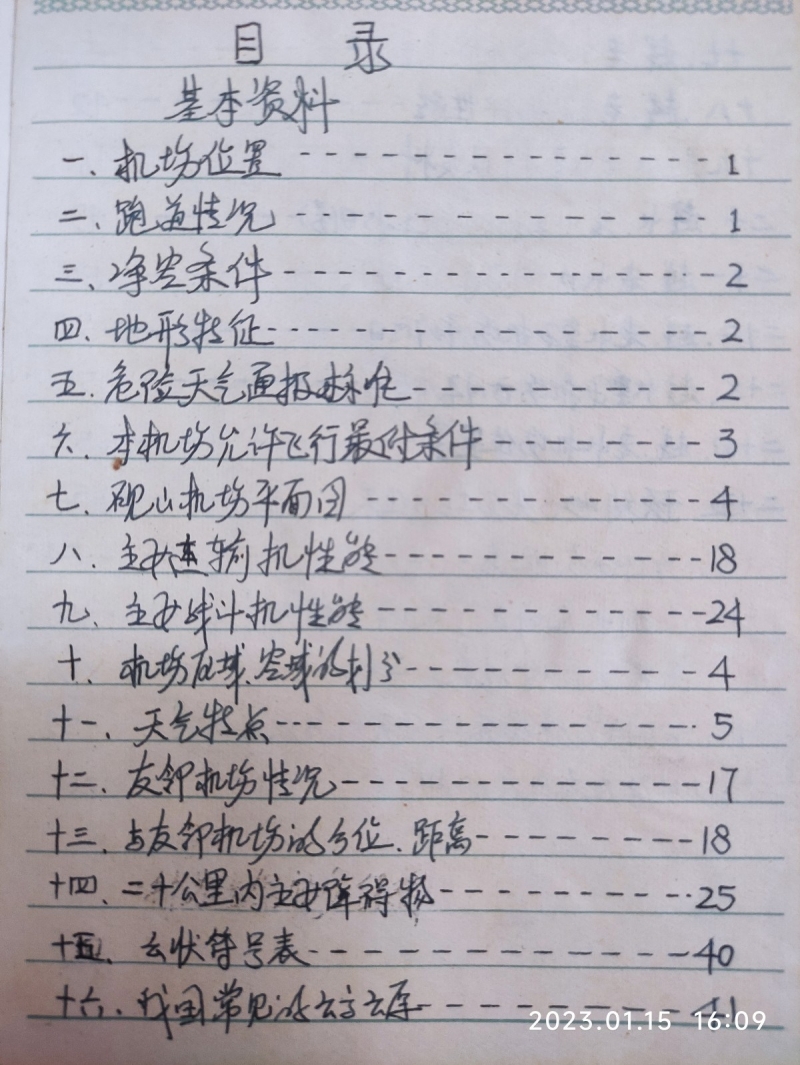 目 录
基本资料
一、机场位置 -------------- 1
二、跑道情况 -------------- 1
三、净空条件 -------------- 2
四、地形特征 -------------- 2
五、危险天气通报标准 --------- 2
六、本机场允许飞行最低条件 ------ 3
七、砚山机场平面图 ---------- 4
八、主要运输机性能 ---------- 18
九、主要战斗机性能 ---------- 24
十、机场区域、空域的划分 ------- 4
十一、天气特点 ------------ 5
十二、友邻机场情况 ---------- 17
十三、与友邻机场的方位、距离 ----- 18
十四、二十公里内主要障碍物 ------ 25
十五、云状符号表 ----------- 40
十六、我国常见的云高云厚 ------- 41
2023.01.15 16:09